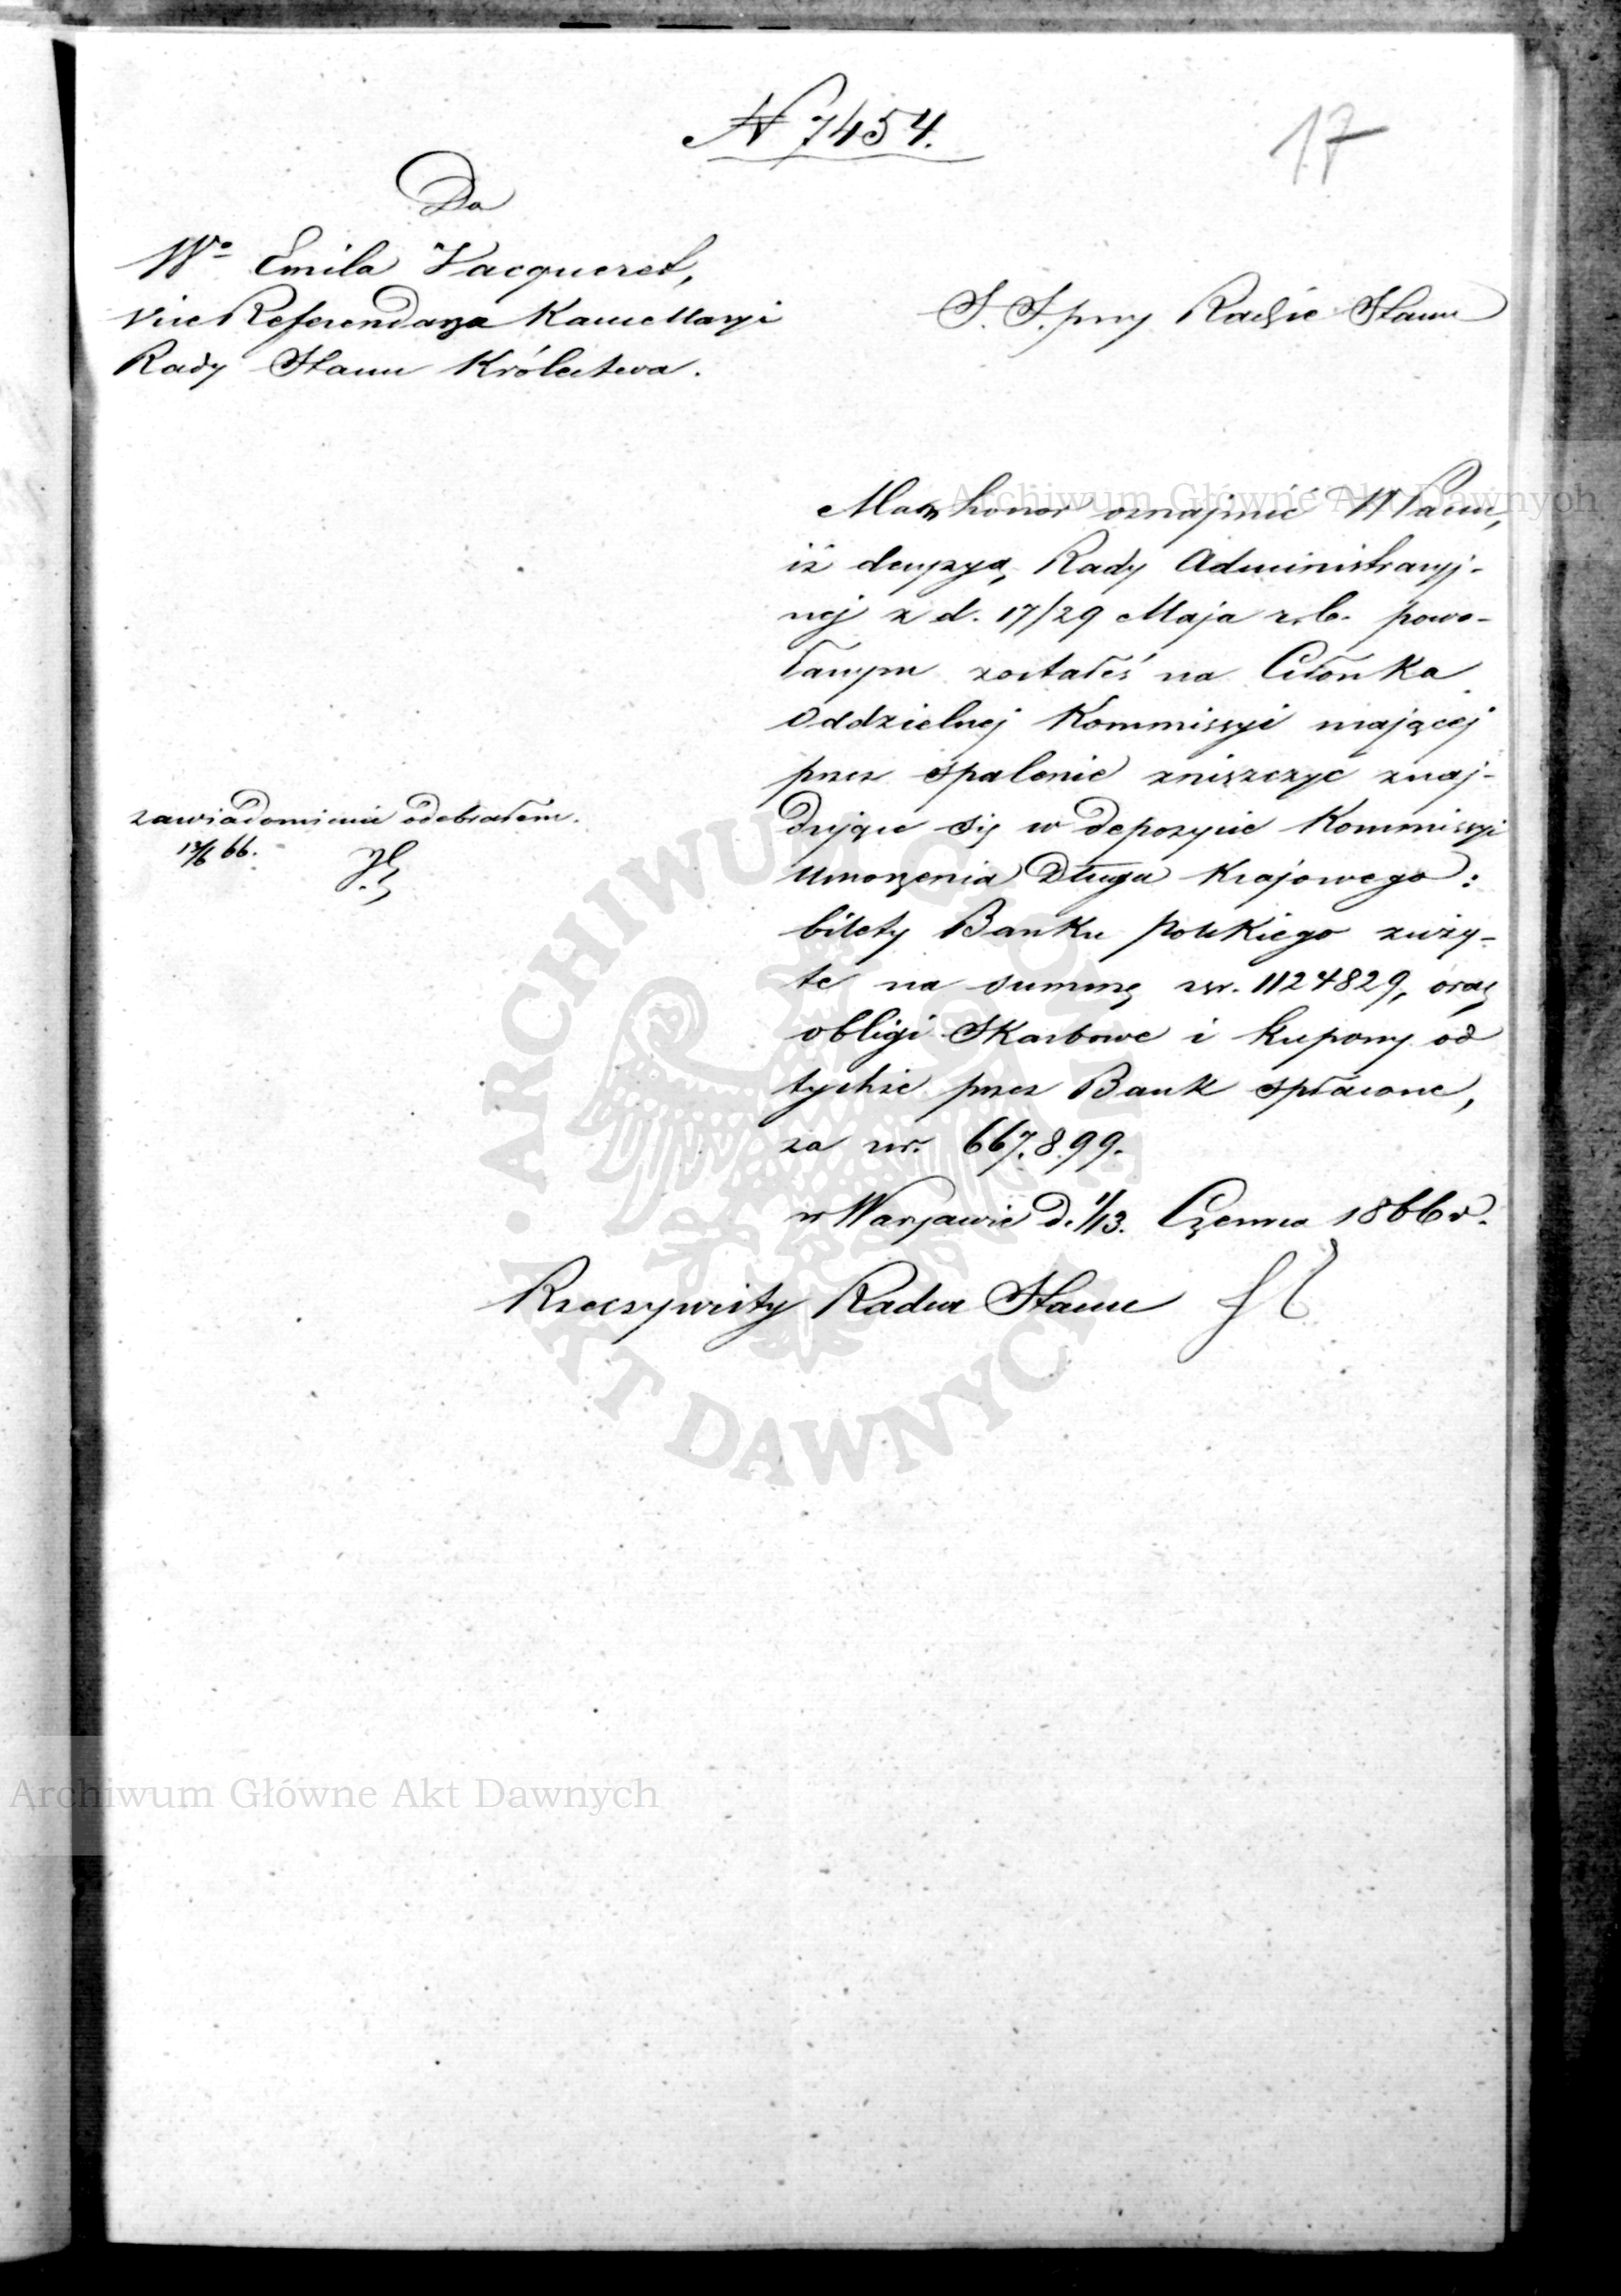 N 7454.
17
Do
Wo Emila Vacqueret,
Vice Referendarza Kancellaryi
Rady Stanu Królestwa.
S. S. przy Radzie Stanu
Mam honor oznajmić WPanu,
iż decyzyą Rady Administracyj-
nej z d. 17/29 Maja r.b. powo-
łanym zostałeś na Członka
Oddzielnej Kommissyi mającej
przez spalenie zniszczyć znaj-
dujące się w depozycie Kommissyi
Umorzenia Długu Krajowego:
bilety Banku Polskiego zuży-
te na summę rsr. 1124829, oraz
obligi Skarbowe i kupony od
tychże przez Bank spłacone,
za rsr. 667.899.
w Warszawie d. 1/13. Czerwca 1866 r.
Rzeczywisty Radca Stanu
zawiadomienie odebrałem.
13/6 66.
Archiwum Główne Akt Dawnych
ARCHIWUM GŁÓWNE AKT DAWNYCH
Archiwum Główne Akt Dawnych